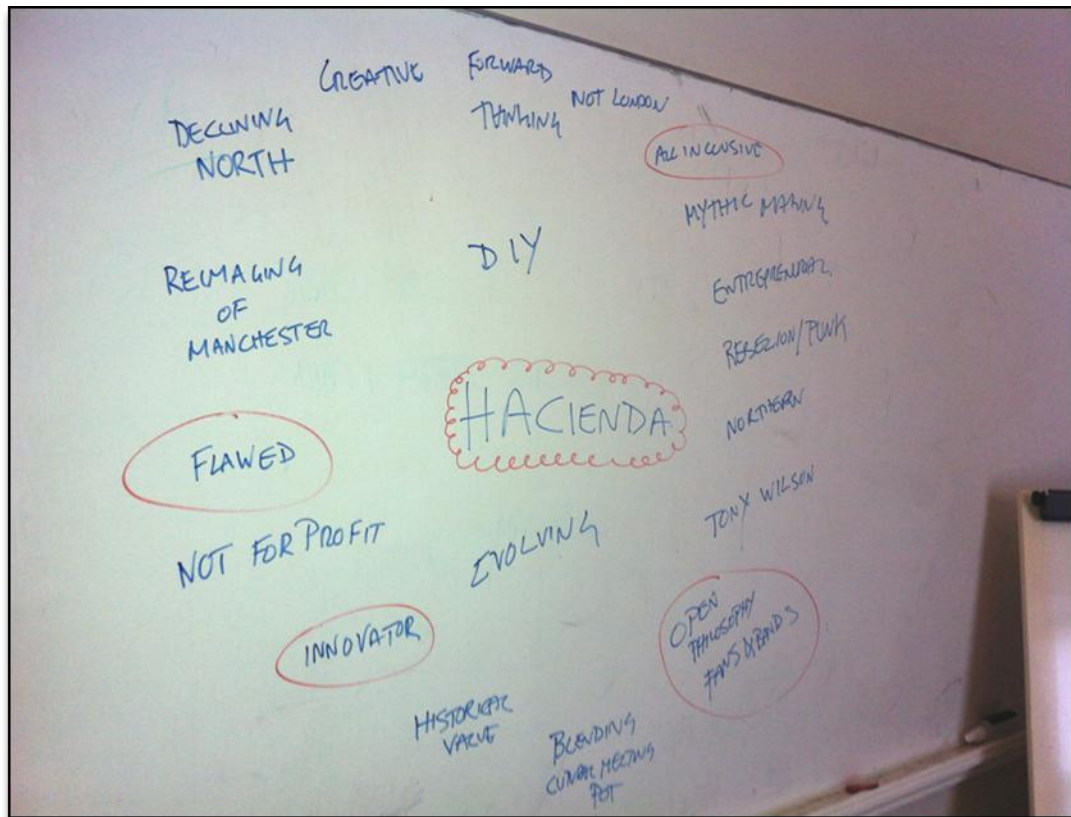 CREATIVE
FORWARD
THINKING
NOT LONDON
DECLINING
NORTH
ALL INCLUSIVE
MYTHIC MAKING
DIY
REIMAGING
OF
MANCHESTER
ENTREPRENUAL
REBELION/PUNK
HACIENDA
NORTHERN
FLAWED
TONY WILSON
NOT FOR PROFIT
EVOLVING
OPEN
PHILOSOPHY
FANS & BANDS
INNOVATOR
HISTORICAL
VALUE
BLENDING
MELTING
POT